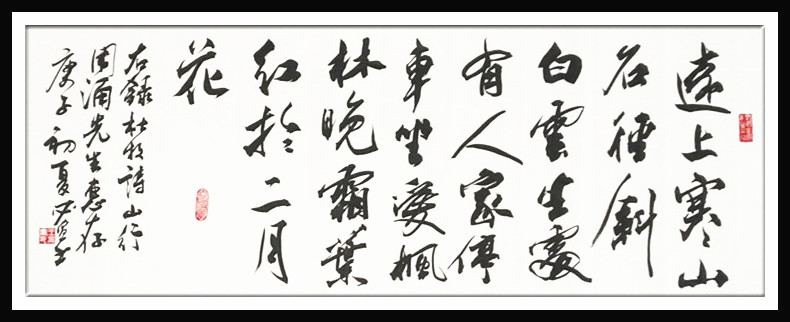 遠上寒山
石徑斜
白雲生處
有人家停
車坐愛楓
林晚霜葉
紅於二月
花
右錄杜牧詩山行
周涌先生惠存
庚子初夏